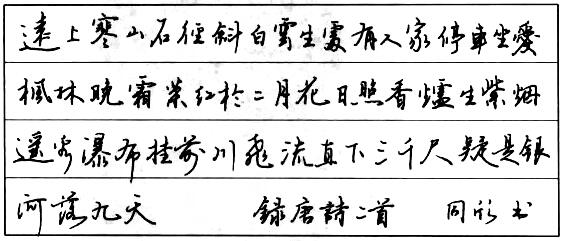 遠上寒山石徑斜白雲生處有人家停車坐愛
楓林晚霜葉紅於二月花日照香爐生紫烟
遙看瀑布挂前川飛流直下三千尺疑是銀
河落九天 錄唐詩二首 同欣书